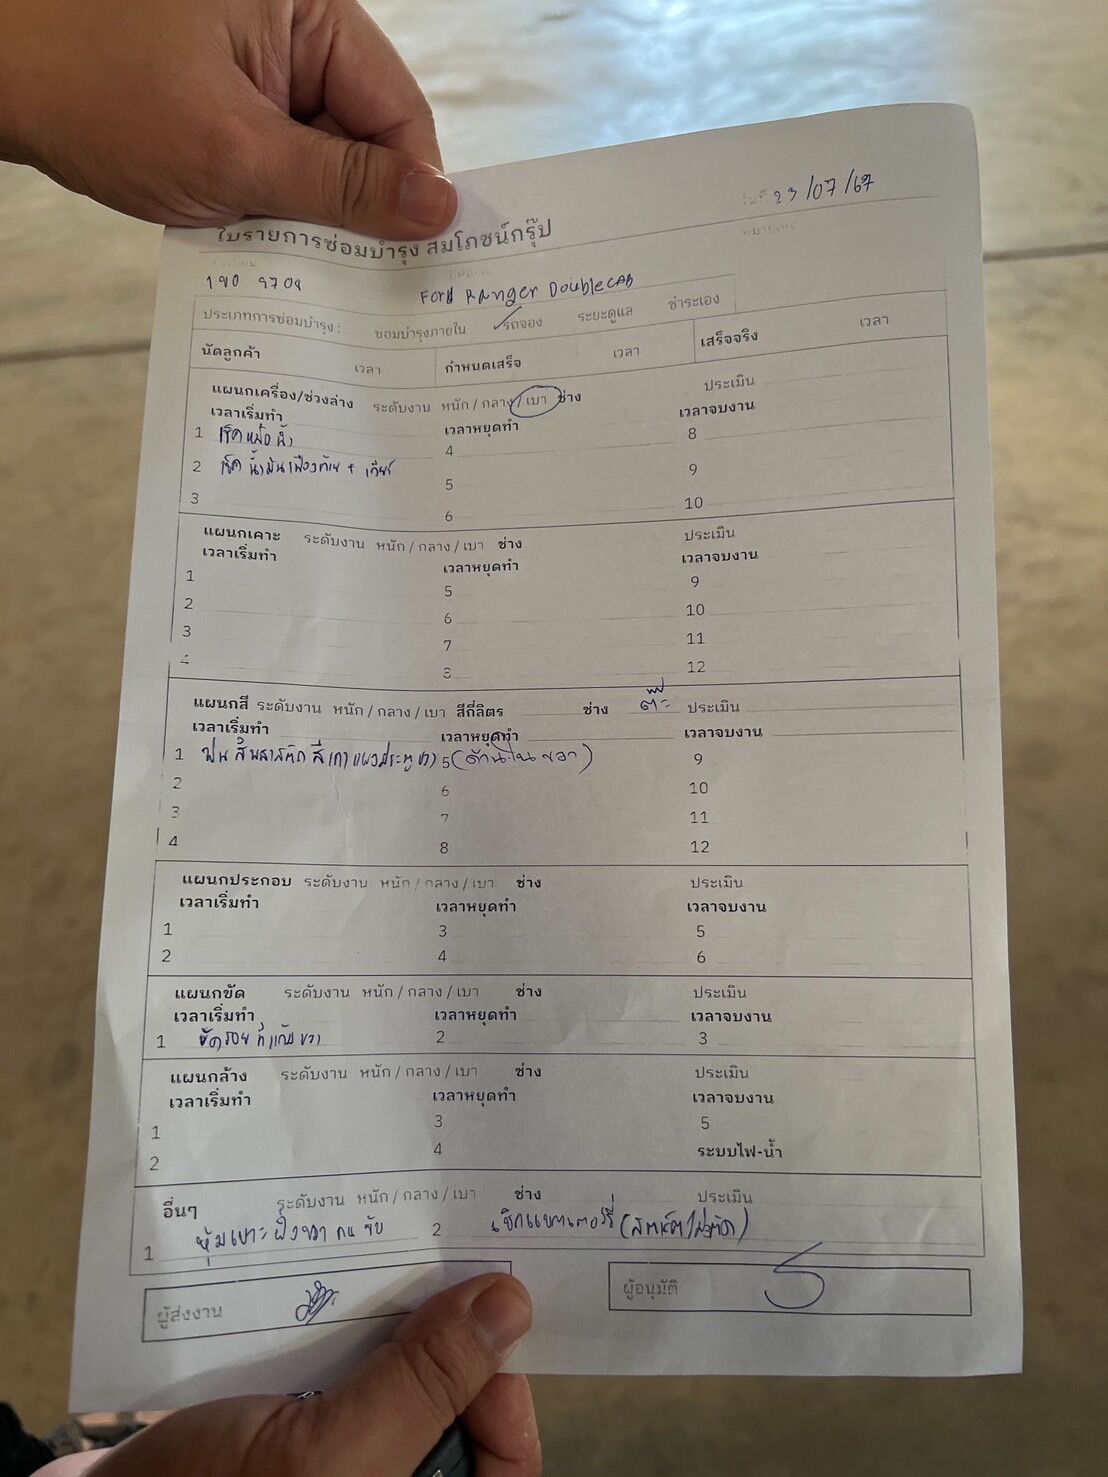 วันที่ 23/07/67
ใบรายการซ่อมบำรุง สมโภชน์กรุ๊ป
หมายเหตุ
Ford Ranger DoubleCAB
ประเภทการซ่อมบำรุง : ซ่อมบำรุงภายใน รถจอง ระยะดูแล ชำระเอง
นัดลูกค้า เวลา กำหนดเสร็จ เวลา เสร็จจริง เวลา
แผนกเครื่อง/ช่วงล่าง ระดับงาน หนัก / กลาง / เบา ช่าง ประเมิน
เวลาเริ่มทำ เวลาหยุดทำ เวลาจบงาน
1 เช็คหม้อน้ำ 4 8
2 เช็คน้ำมันเฟืองท้าย + เกียร์ 5 9
3 6 10
แผนกเคาะ ระดับงาน หนัก / กลาง / เบา ช่าง ประเมิน
เวลาเริ่มทำ เวลาหยุดทำ เวลาจบงาน
1 5 9
2 6 10
3 7 11
4 8 12
แผนกสี ระดับงาน หนัก / กลาง / เบา สีกี่ลิตร ช่าง ประเมิน
เวลาเริ่มทำ เวลาหยุดทำ เวลาจบงาน
1 พ่นสีพลาสติก สีเทา แผงประตูขวา 5 (ด้านในขวา) 9
2 6 10
3 7 11
4 8 12
แผนกประกอบ ระดับงาน หนัก / กลาง / เบา ช่าง ประเมิน
เวลาเริ่มทำ เวลาหยุดทำ เวลาจบงาน
1 3 5
2 4 6
แผนกขัด ระดับงาน หนัก / กลาง / เบา ช่าง ประเมิน
เวลาเริ่มทำ เวลาหยุดทำ เวลาจบงาน
1 ขัดรอย ขวา 2 3
แผนกล้าง ระดับงาน หนัก / กลาง / เบา ช่าง ประเมิน
เวลาเริ่มทำ เวลาหยุดทำ เวลาจบงาน
1 3 5
2 4 ระบบไฟ-น้ำ
อื่นๆ ระดับงาน หนัก / กลาง / เบา ช่าง ประเมิน
1 หุ้มเบาะฝั่งขวา คนขับ 2 เช็คแบตเตอร์รี่
ผู้ส่งงาน ผู้อนุมัติ